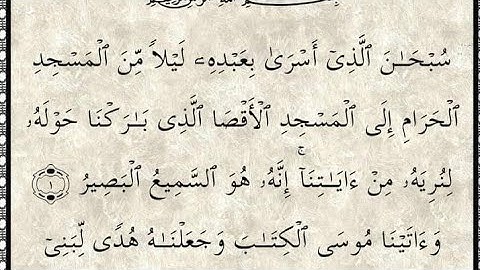 بِسْمِ ٱللَّهِ ٱلرَّحْمَٰنِ ٱلرَّحِيمِ
سُبْحَٰنَ ٱلَّذِىٓ أَسْرَىٰ بِعَبْدِهِۦ لَيْلًا مِّنَ ٱلْمَسْجِدِ
ٱلْحَرَامِ إِلَى ٱلْمَسْجِدِ ٱلْأَقْصَا ٱلَّذِى بَٰرَكْنَا حَوْلَهُۥ
لِنُرِيَهُۥ مِنْ ءَايَٰتِنَآ ۚ إِنَّهُۥ هُوَ ٱلسَّمِيعُ ٱلْبَصِيرُ ١
وَءَاتَيْنَا مُوسَى ٱلْكِتَٰبَ وَجَعَلْنَٰهُ هُدًى لِّبَنِىٓ